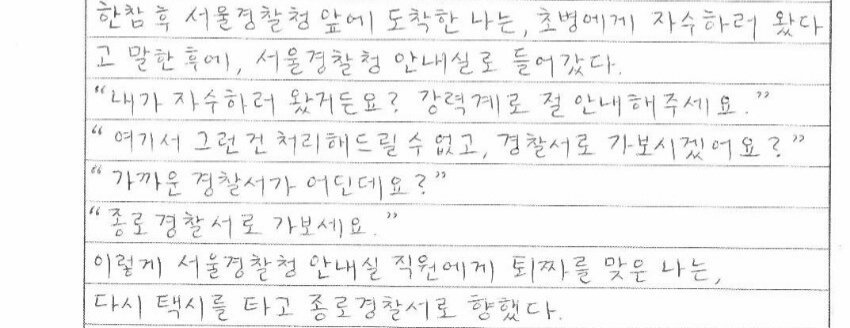 한참 후 서울경찰청 앞에 도착한 나는, 초병에게 자수하러 왔다
고 말한 후에, 서울경찰청 안내실로 들어갔다.
"내가 자수하러 왔거든요? 강력계로 절 안내해주세요."
"여기서 그런 건 처리해드릴 수 없고, 경찰서로 가보시겠어요?"
"가까운 경찰서가 어딘데요?"
"종로경찰서로 가보세요."
이렇게 서울경찰청 안내실 직원에게 퇴짜를 맞은 나는,
다시 택시를 타고 종로경찰서로 향했다.